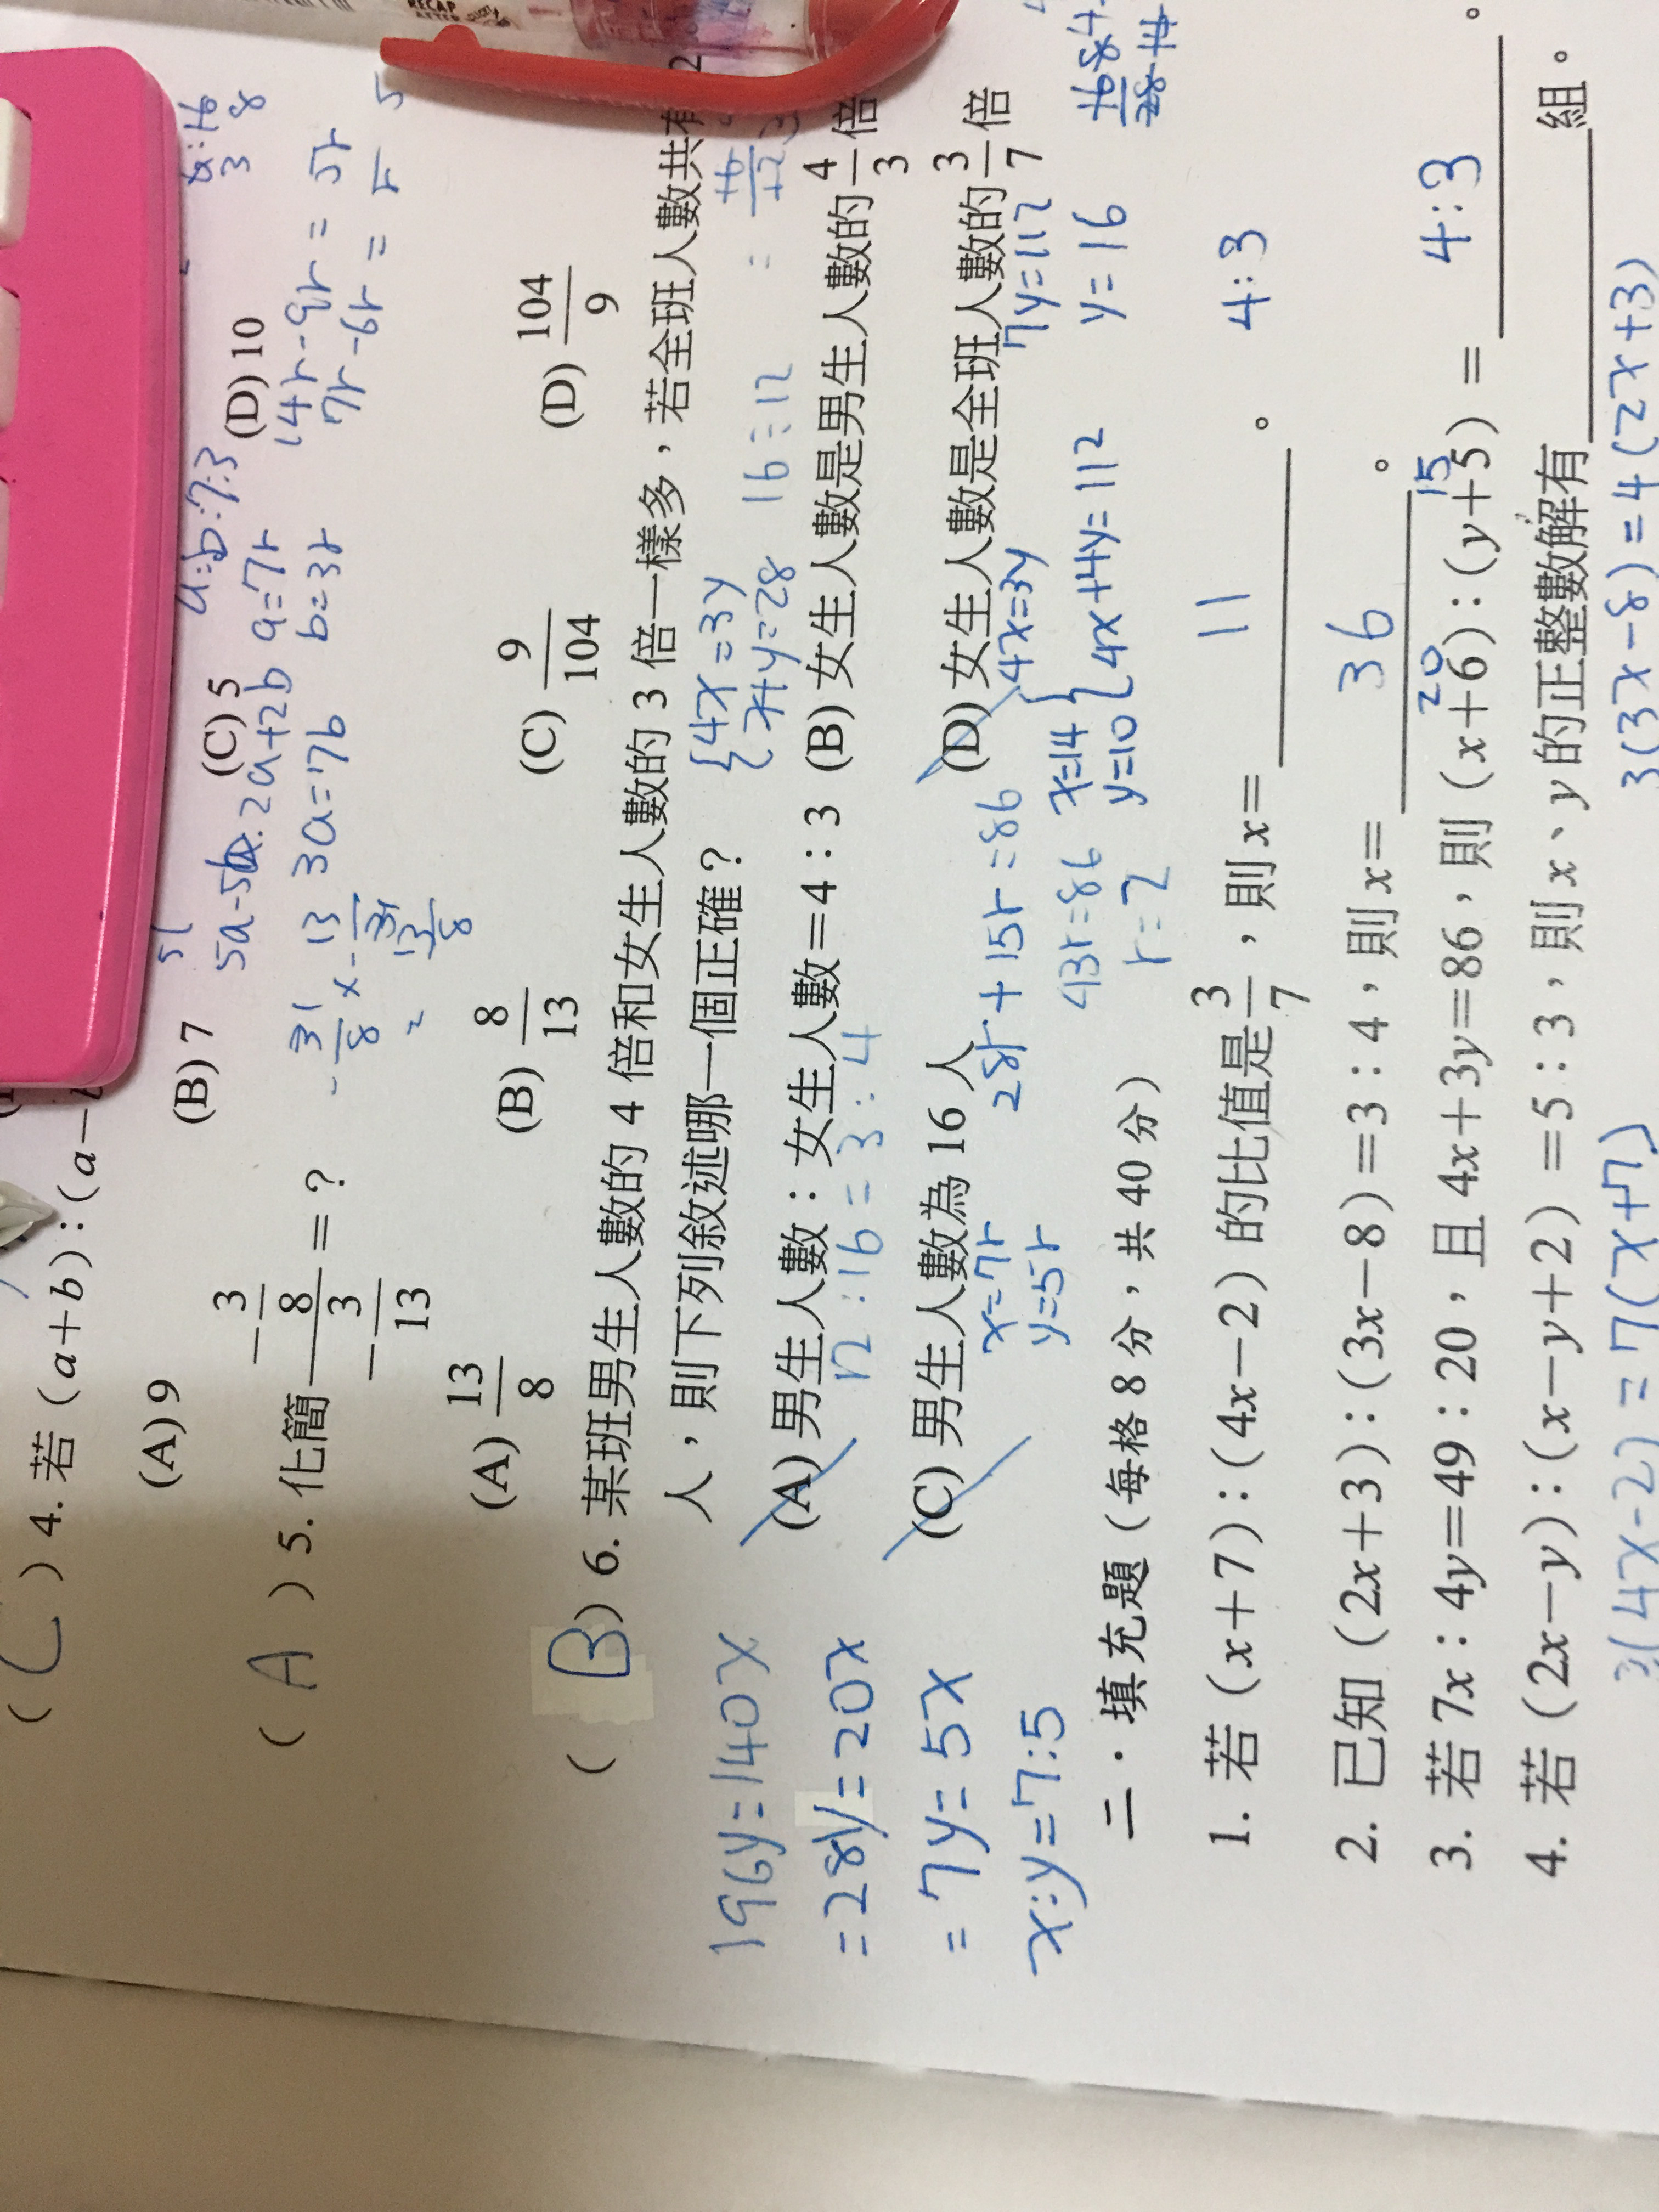 RECAP
AFTER
( C ) 4. 若 (a+b) : (a-
(A) 9 (B) 7 (C) 5 (D) 10
a:b:7:3
2a+2b a=7r
3a=7b b=3r
14r-9r = 5r
7r-6r = r 5
( A ) 5. 化簡 (-3/8)/(-3/13) = ?
(A) 13/8 (B) 8/13 (C) 9/104 (D) 104/9
( B ) 6. 某班男生人數的 4 倍和女生人數的 3 倍一樣多，若全班人數共有 2
人，則下列敘述哪一個正確？
{4x=3y
x+y=28
16:12
(A) 男生人數：女生人數=4：3 (B) 女生人數是男生人數的 4/3 倍
12:16=3:4
(C) 男生人數為 16 人 (D) 女生人數是全班人數的 3/7 倍
x=7r
y=5r
28r+15r=86
43r=86
r=2
x=14
y=10
4x=3y
{4x+4y=112
7y=112
y=16
196y=140x
=28y=20x
=7y=5x
x:y=7:5
二．填充題（每格 8 分，共 40 分）
1. 若 (x+7) : (4x-2) 的比值是 3/7，則 x= 11 。
4:3
2. 已知 (2x+3) : (3x-8) = 3 : 4，則 x= 36 。
20 15
3. 若 7x : 4y=49 : 20，且 4x+3y=86，則 (x+6) : (y+5) = 4:3 。
4. 若 (2x-y) : (x-y+2) =5 : 3，則 x、y 的正整數解有 組。
3(4x-2)=7(x+7)
3(3x-8)=4(2x+3)